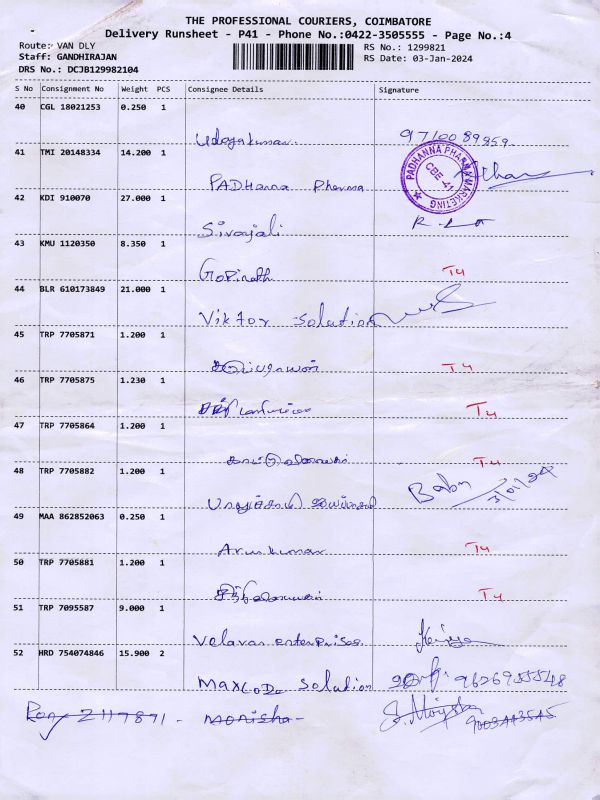 THE PROFESSIONAL COURIERS, COIMBATORE
Delivery Runsheet - P41 - Phone No.:0422-3505555 - Page No.:4
Route: VAN DLY RS No.: 1299821
Staff: GANDHIRAJAN RS Date: 03-Jan-2024
DRS No.: DCJB129982104
S No Consignment No Weight PCS Consignee Details Signature
40 CGL 18021253 0.250 1
Udayakumar 9710089859
41 TMI 20148334 14.200 1
PADHanna Pharma
PADHANNA PHARMA MARKETING
CBE-41
42 KDI 910070 27.000 1
Sivajali
43 KMU 1120350 8.350 1
Gopinath T4
44 BLR 610173849 21.000 1
Viktor Solution
45 TRP 7705871 1.200 1
T4
46 TRP 7705875 1.230 1
T4
47 TRP 7705864 1.200 1
T4
48 TRP 7705882 1.200 1
Babu 3/01/24
49 MAA 862852063 0.250 1
Arunkumar T4
50 TRP 7705881 1.200 1
T4
51 TRP 7095587 9.000 1
Velavan enterprises
52 HRD 754074846 15.900 2
Maxcode Solution 9626955548
2117871 - monisha - 9003443545